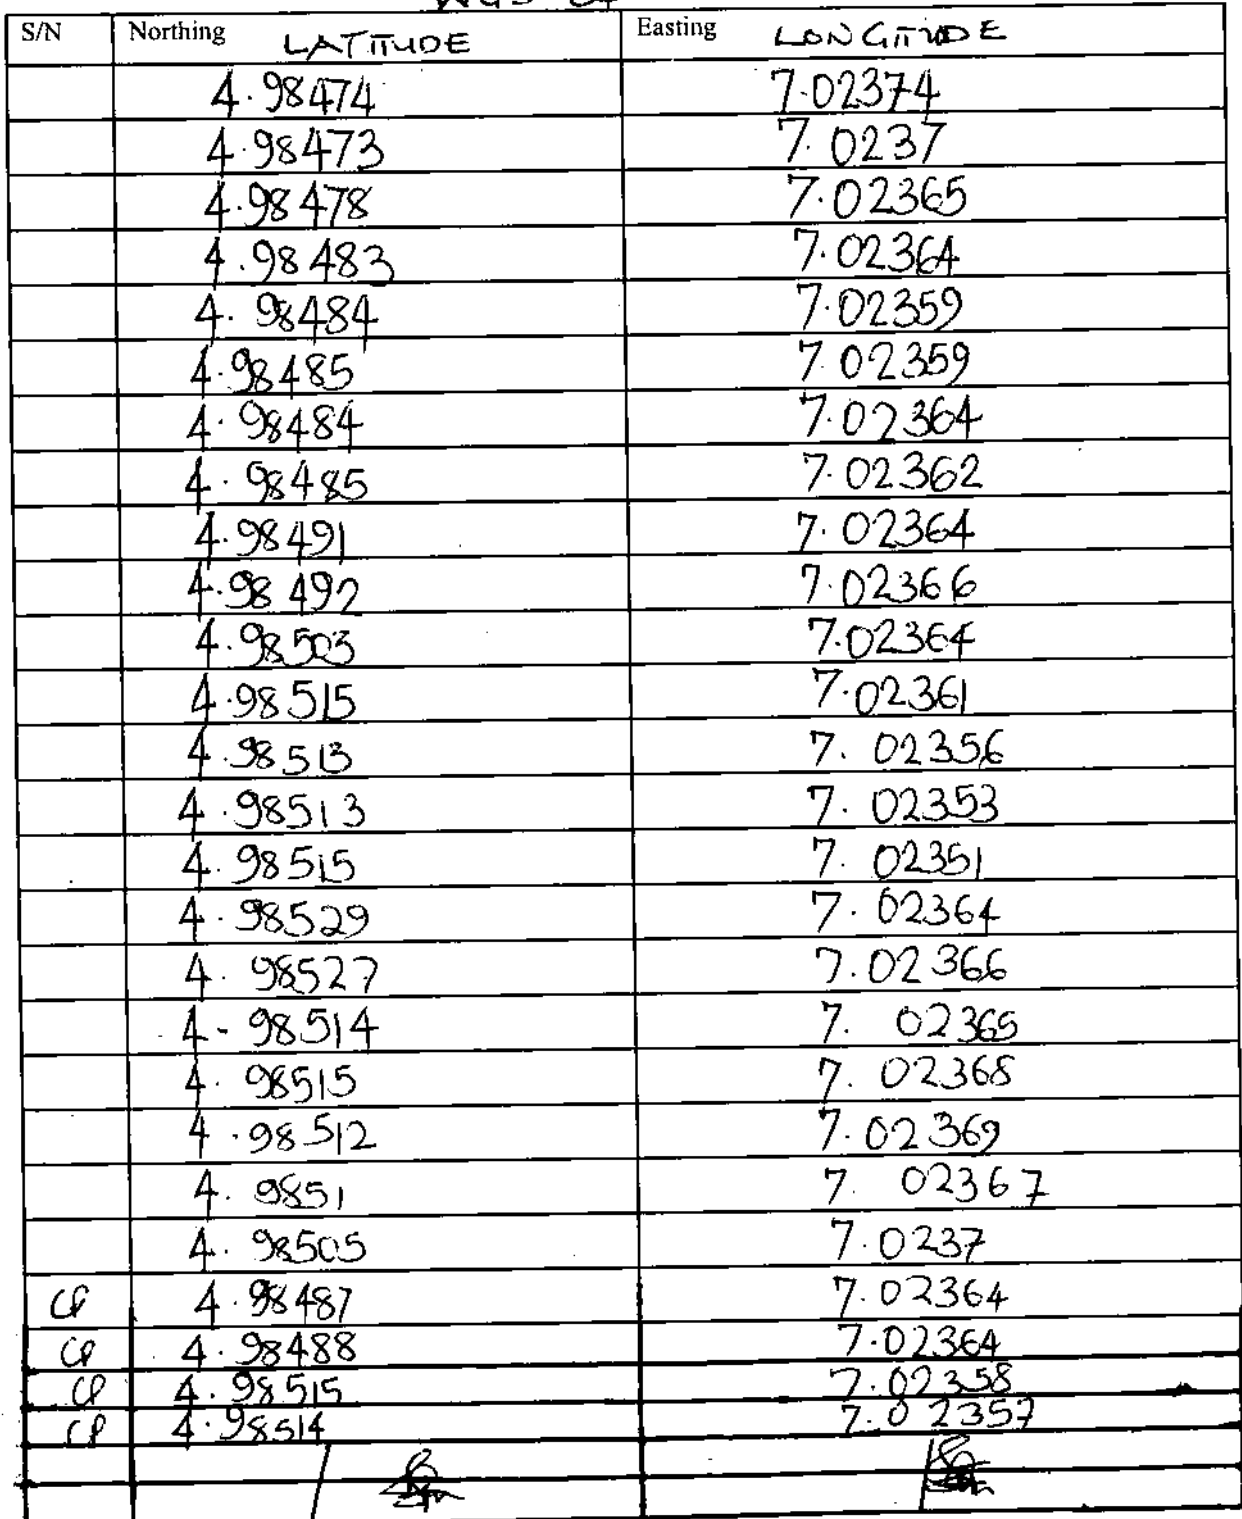 WGS 84
S/N Northing LATITUDE Easting LONGITUDE
4.98474 7.02374
4.98473 7.0237
4.98478 7.02365
4.98483 7.02364
4.98484 7.02359
4.98485 7.02359
4.98484 7.02364
4.98485 7.02362
4.98491 7.02364
4.98492 7.02366
4.98503 7.02364
4.98515 7.02361
4.98513 7.02356
4.98513 7.02353
4.98515 7.02351
4.98529 7.02364
4.98527 7.02366
4-98514 7.02365
4.98515 7.02368
4.98512 7.02369
4.9851 7.02367
4.98505 7.0237
CP 4.98487 7.02364
CP 4.98488 7.02364
CP 4.98515 7.02358
CP 4.98514 7.02357